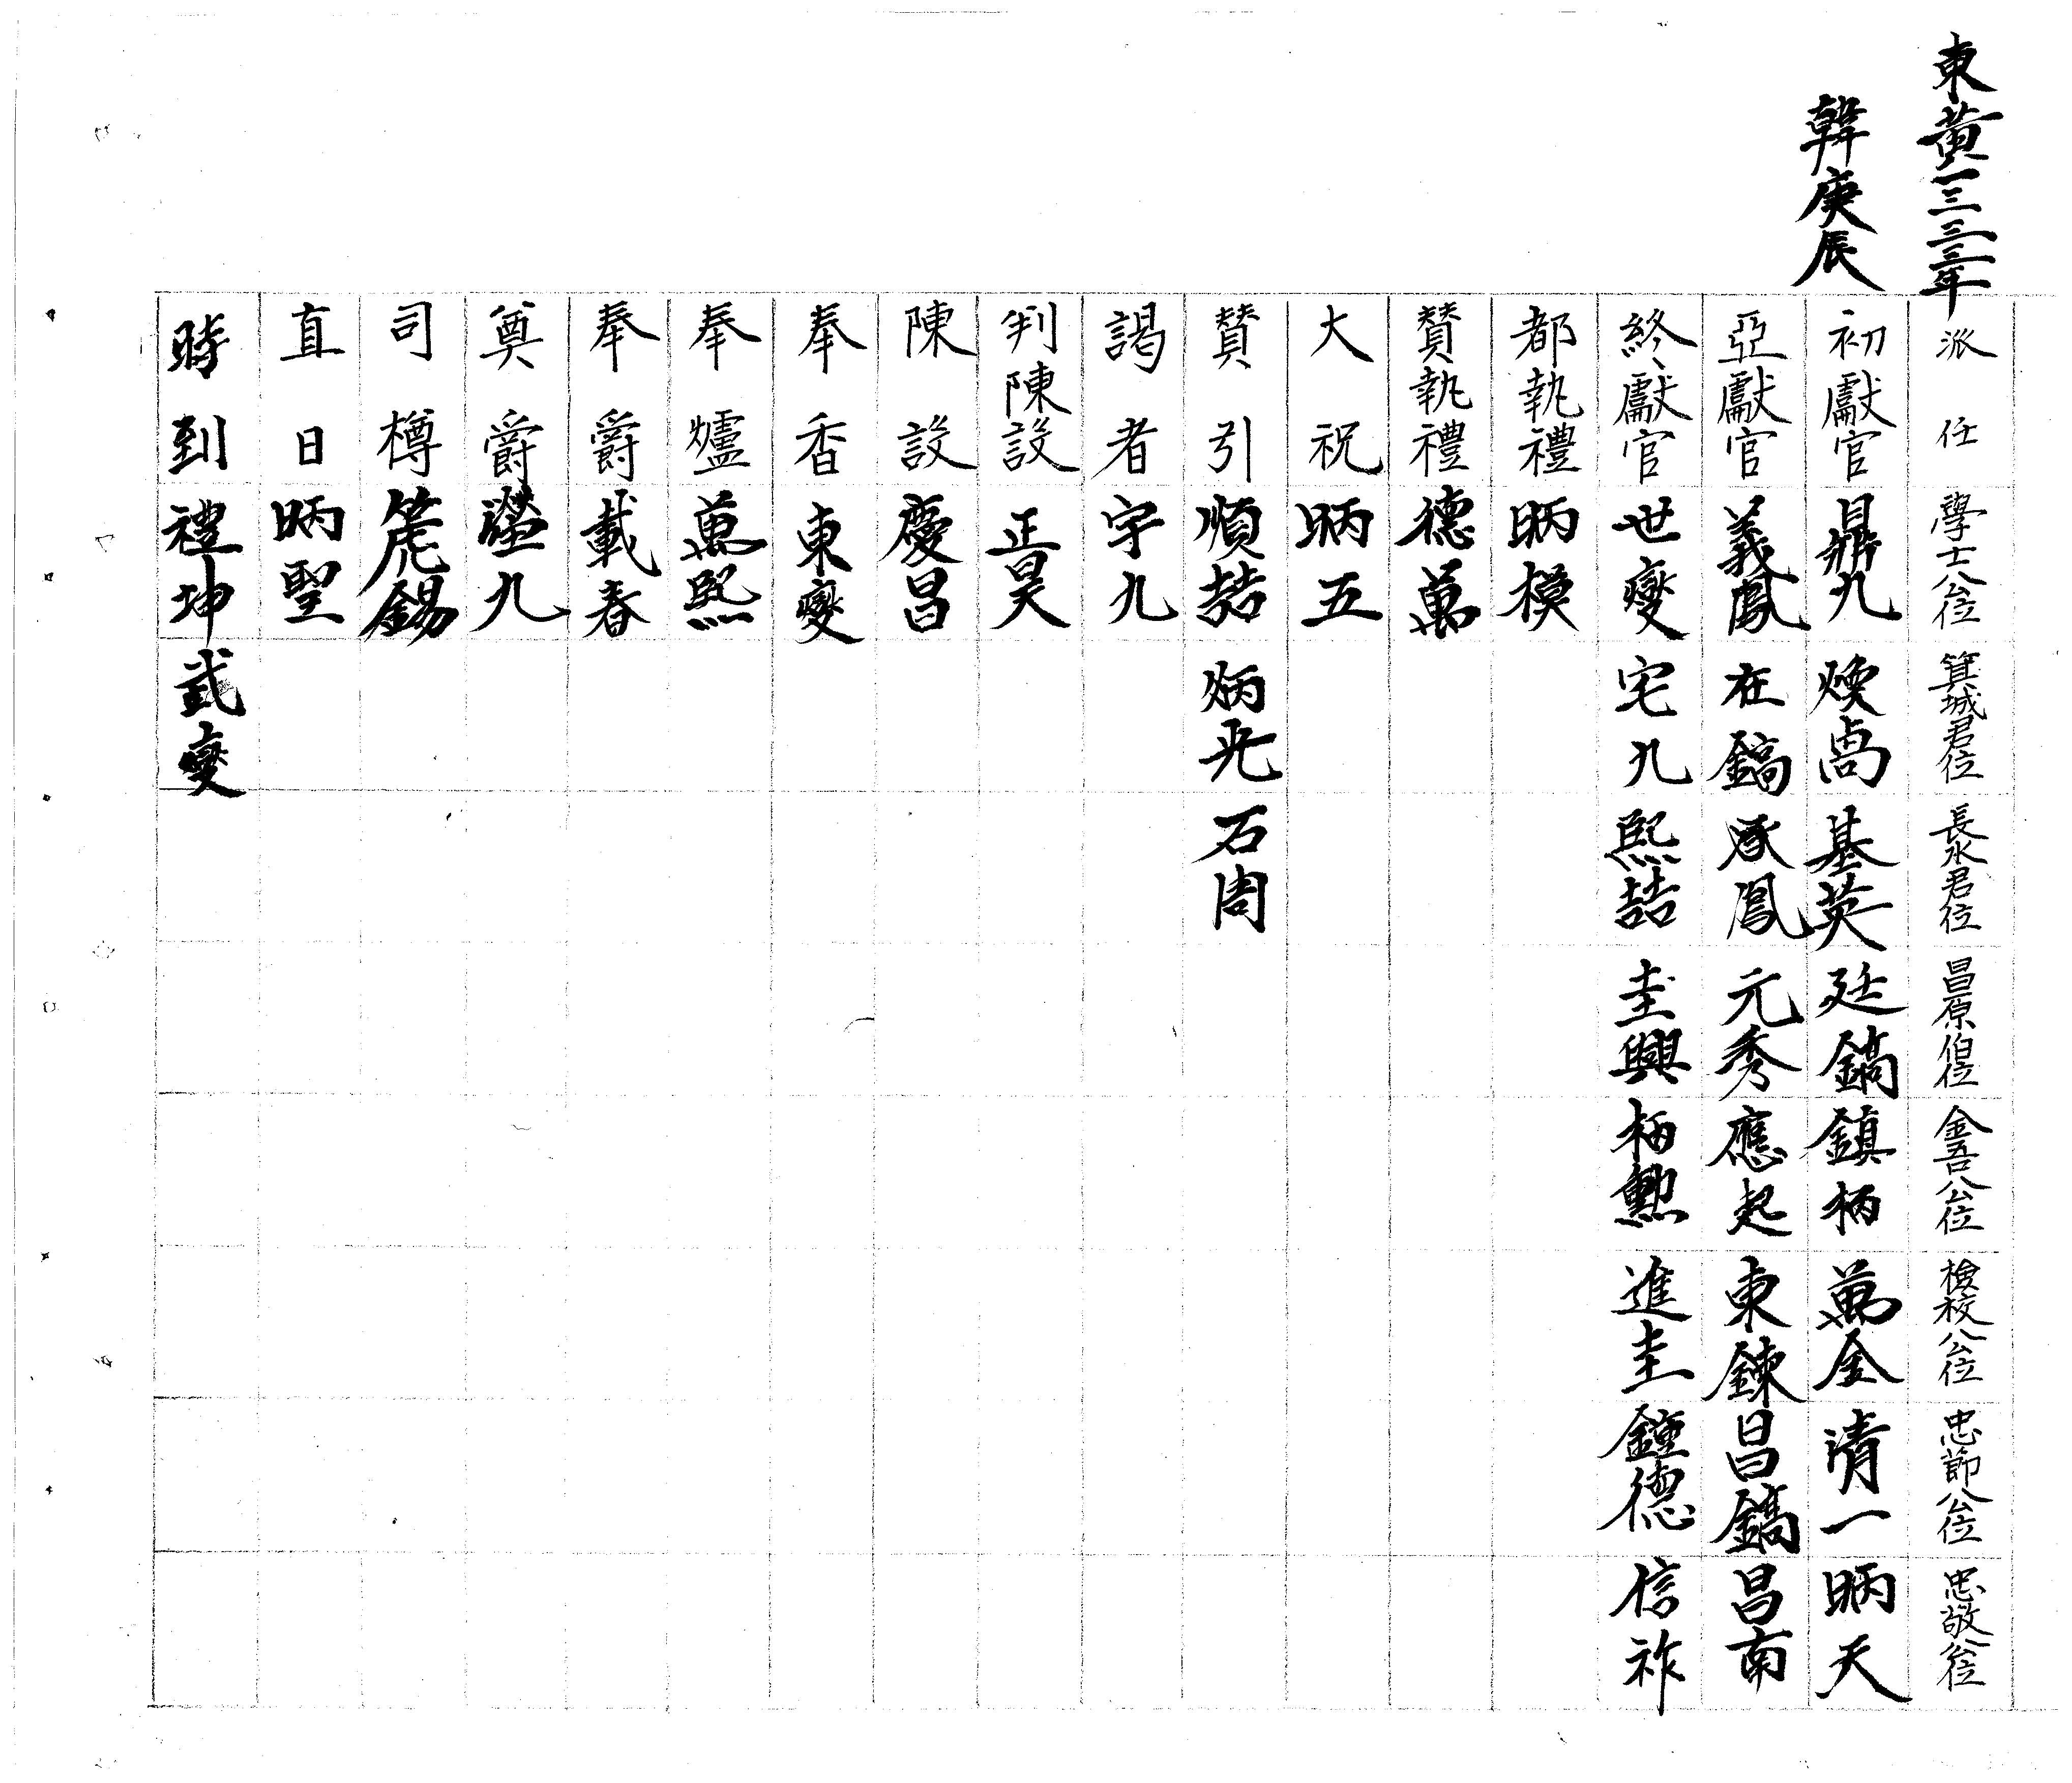 東黃一三三三年
韓庚辰
派任 學士公位 箕城君位 長水君位 昌原伯位 金吾公位 檢校公位 忠節公位 忠敬公位
初獻官 鼎九 煥卨 基英 廷鎬 鎭柄 萬金 清一 昞天
亞獻官 義鳳 在鎬 啄鳳 元秀 應起 東鍊 昌鎬 昌南
終獻官 世燮 宅九 熙喆 圭興 柄勳 進圭 鍾德 信祚
都執禮 昞模
贊執禮 德萬
大祝 昞五
贊引 順喆 炳光 石周
謁者 宇九
判陳設 正昊
陳設 慶昌
奉香 東燮
奉爐 萬熙
奉爵 載春
奠爵 瀅九
司樽 箎錫
直日 昞聖
時到 禮坤 武燮